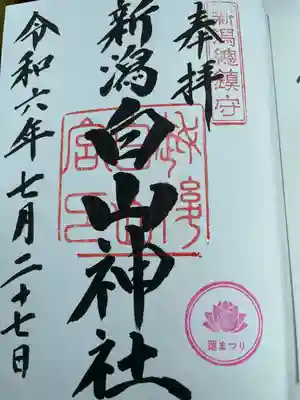 新潟總鎮守
奉拝
新潟白山神社
令和六年七月二十七日
蓮まつり